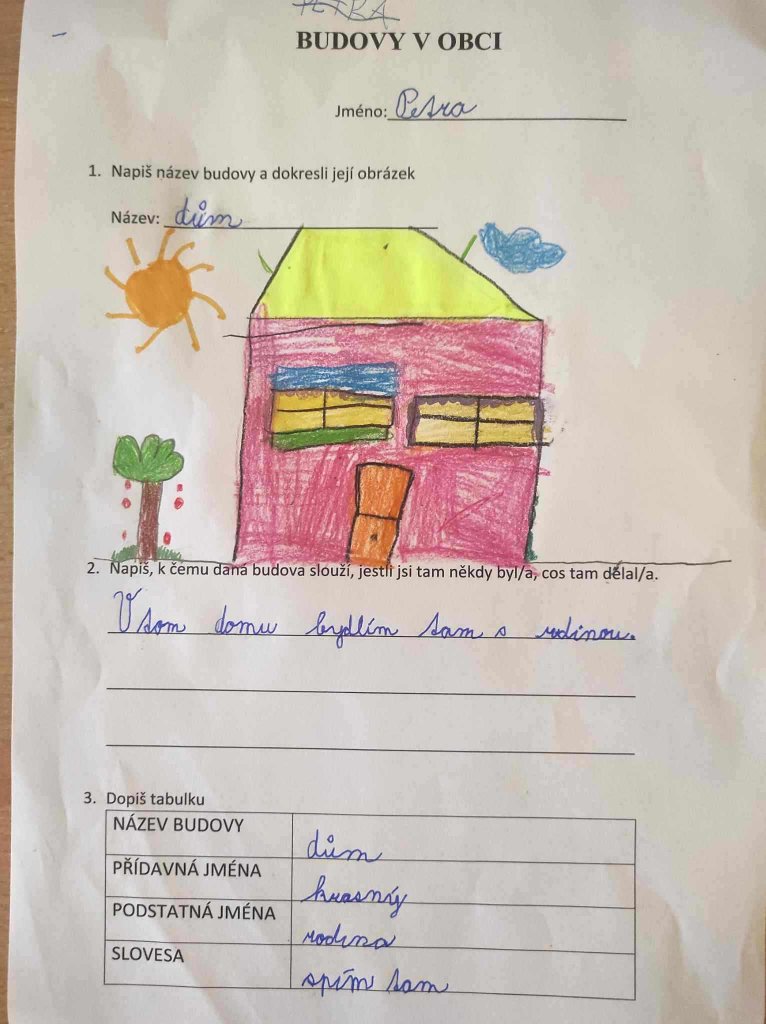 PETRA
BUDOVY V OBCI
Jméno: Petra
1. Napiš název budovy a dokresli její obrázek
Název: dům
2. Napiš, k čemu daná budova slouží, jestli jsi tam někdy byl/a, cos tam dělal/a.
V tom domu bydlím tam s rodinou.
3. Dopiš tabulku
NÁZEV BUDOVY dům
PŘÍDAVNÁ JMÉNA krasný
PODSTATNÁ JMÉNA rodina
SLOVESA spím tam